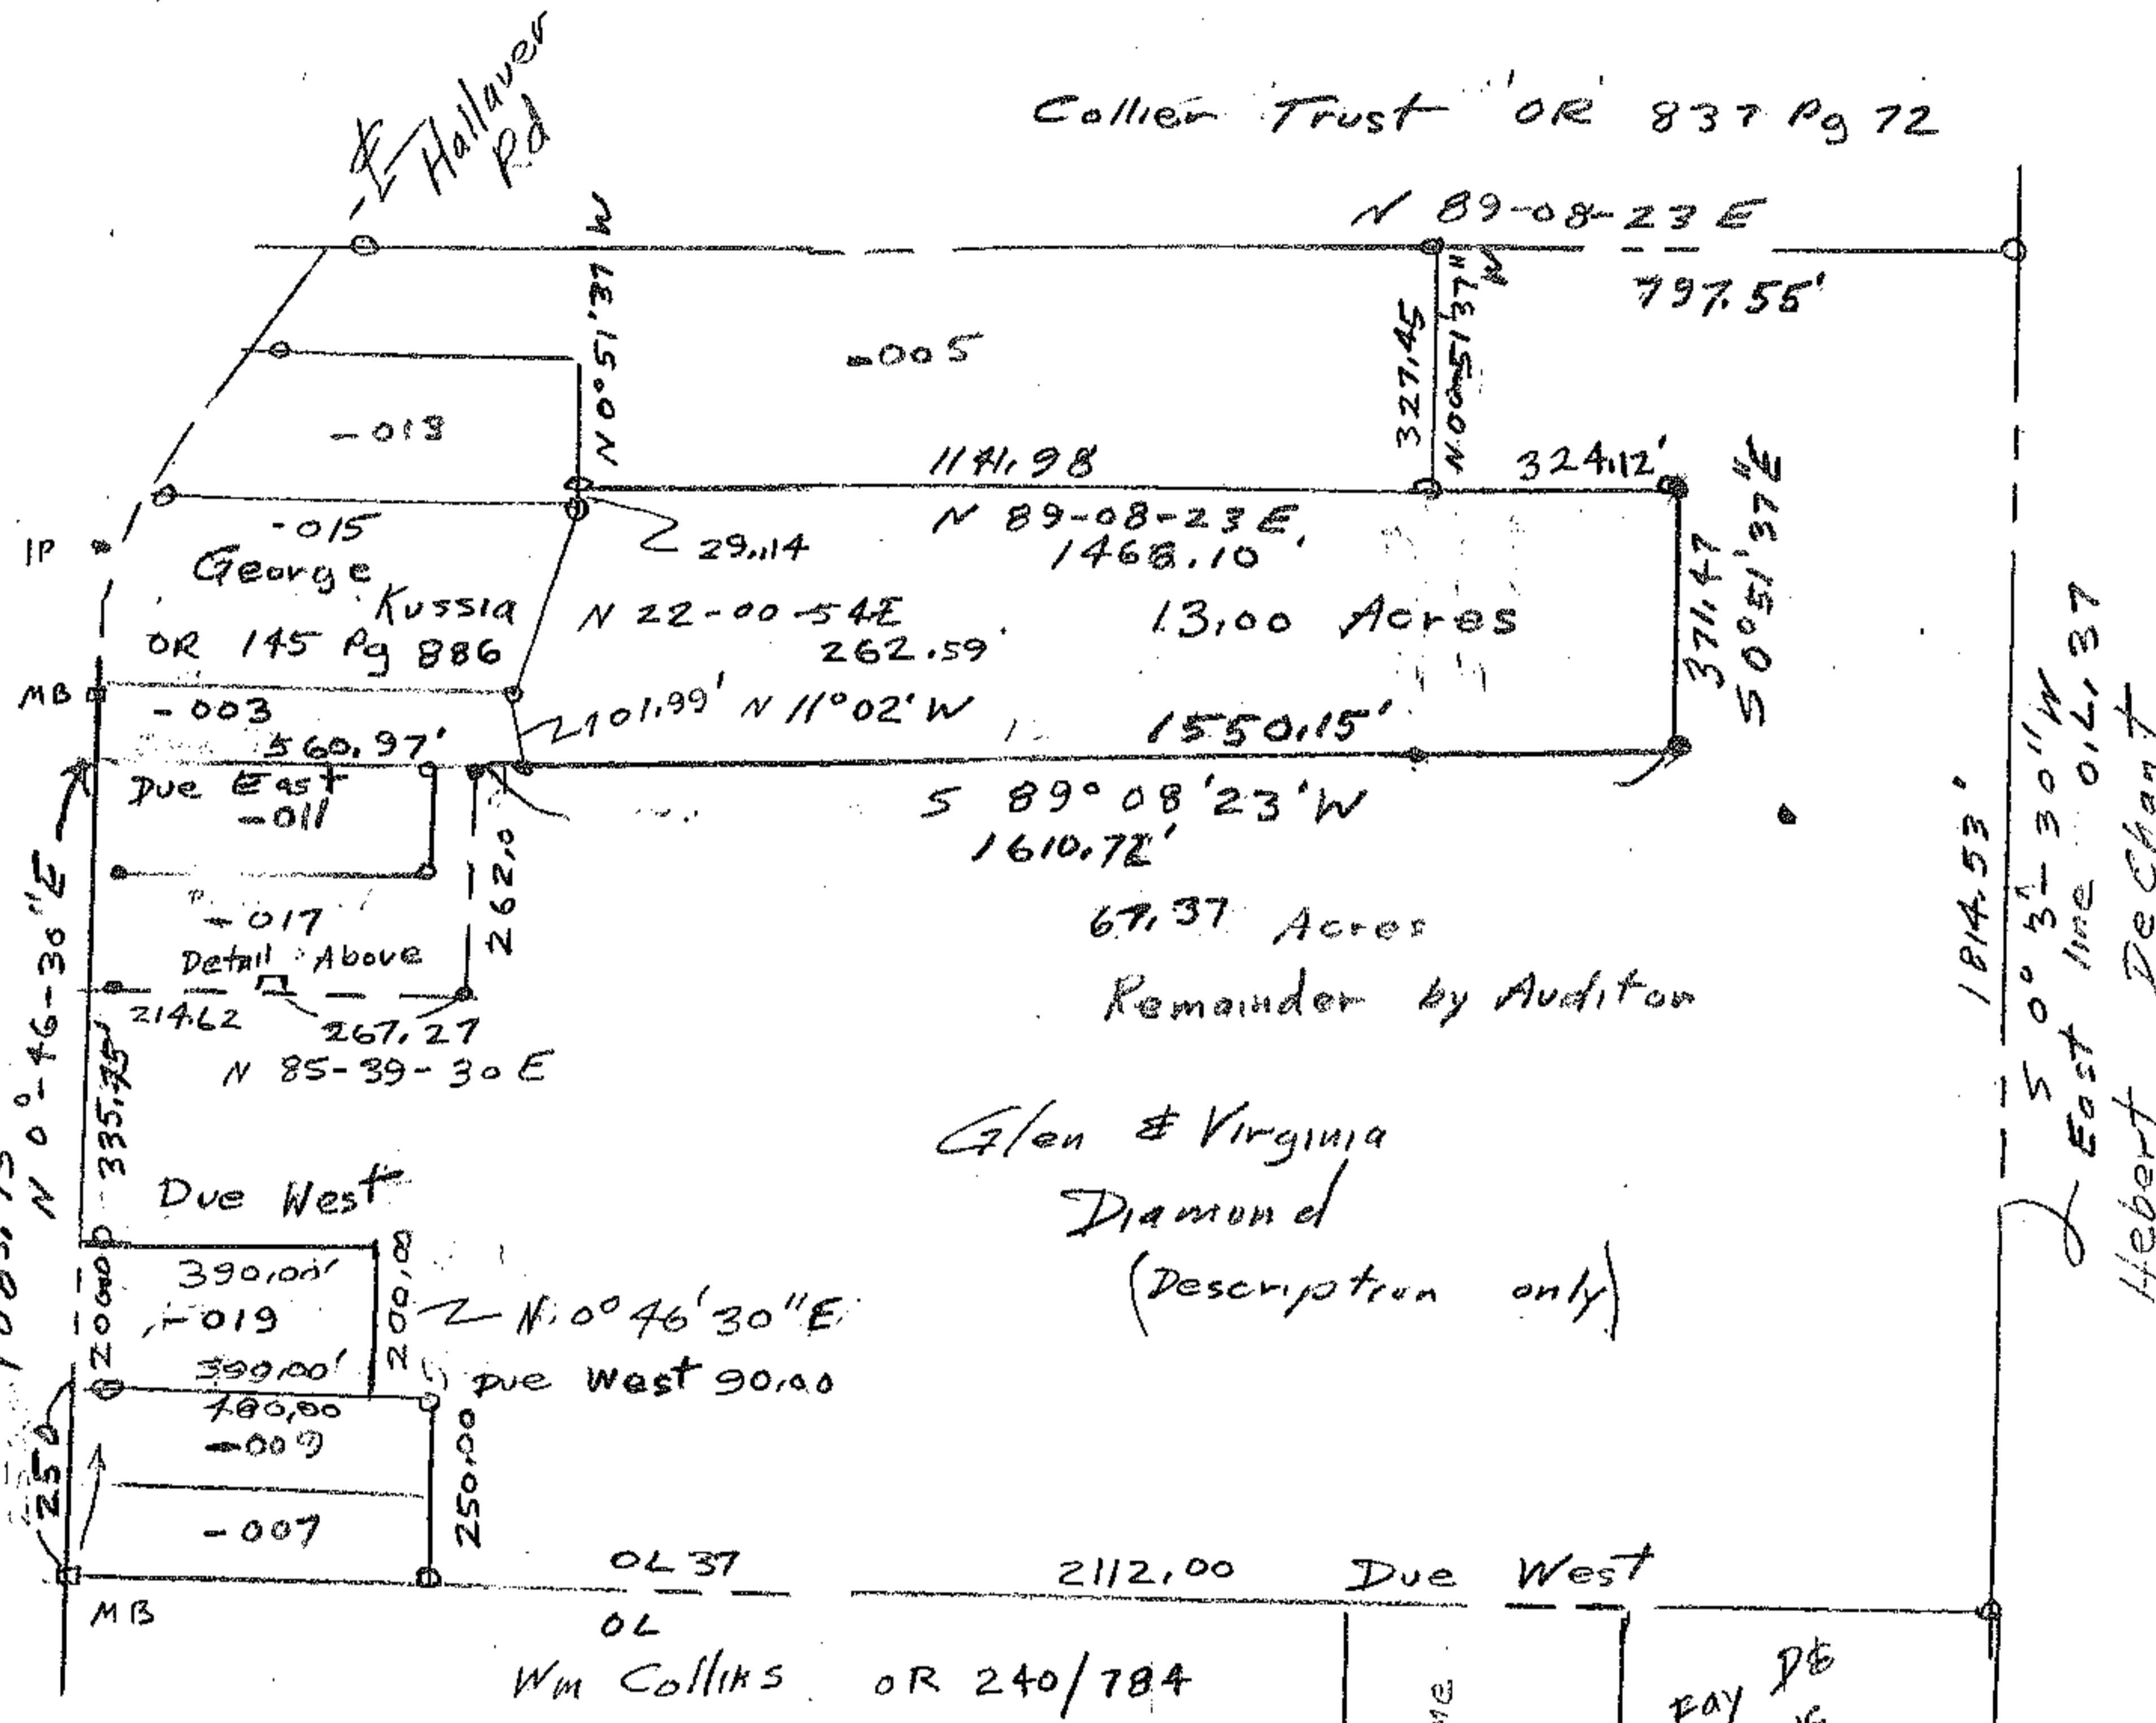 Hallauer
Rd
Collier Trust OR 837 Pg 72
N 89-08-23 E
797.55'
N 0°51'37 W
327.45
N 00-51'37" W
-005
-013
1141.98
324.12'
N 89-08-23 E
1468.10'
-015
29.14
IP
George
Kussia
OR 145 Pg 886
N 22-00-54E
262.59'
13.00 Acres
371.47
S 0°51'37"E
MB
-003
101.99' N 11°02' W
560.97'
1550.15'
Due East
-011
S 89°08'23'W
1610.72'
262.0
N 0°-46-30"E
-017
Detail Above
67.37 Acres
Remainder by Auditor
214.62
267.27
N 85-39-30 E
335.45
1814.53'
S 0° 3'- 30"W
East line O.L. 37
Hebert DeChant
Glen & Virginia
Diamond
(Description only)
Due West
390.00'
-019
200.00
200.00
N. 0°46'30"E
390.00'
Due West 90.00
480.00
-009
250
250.00
-007
MB
OL 37
2112.00 Due West
OL
Wm Collins OR 240/784
Fay